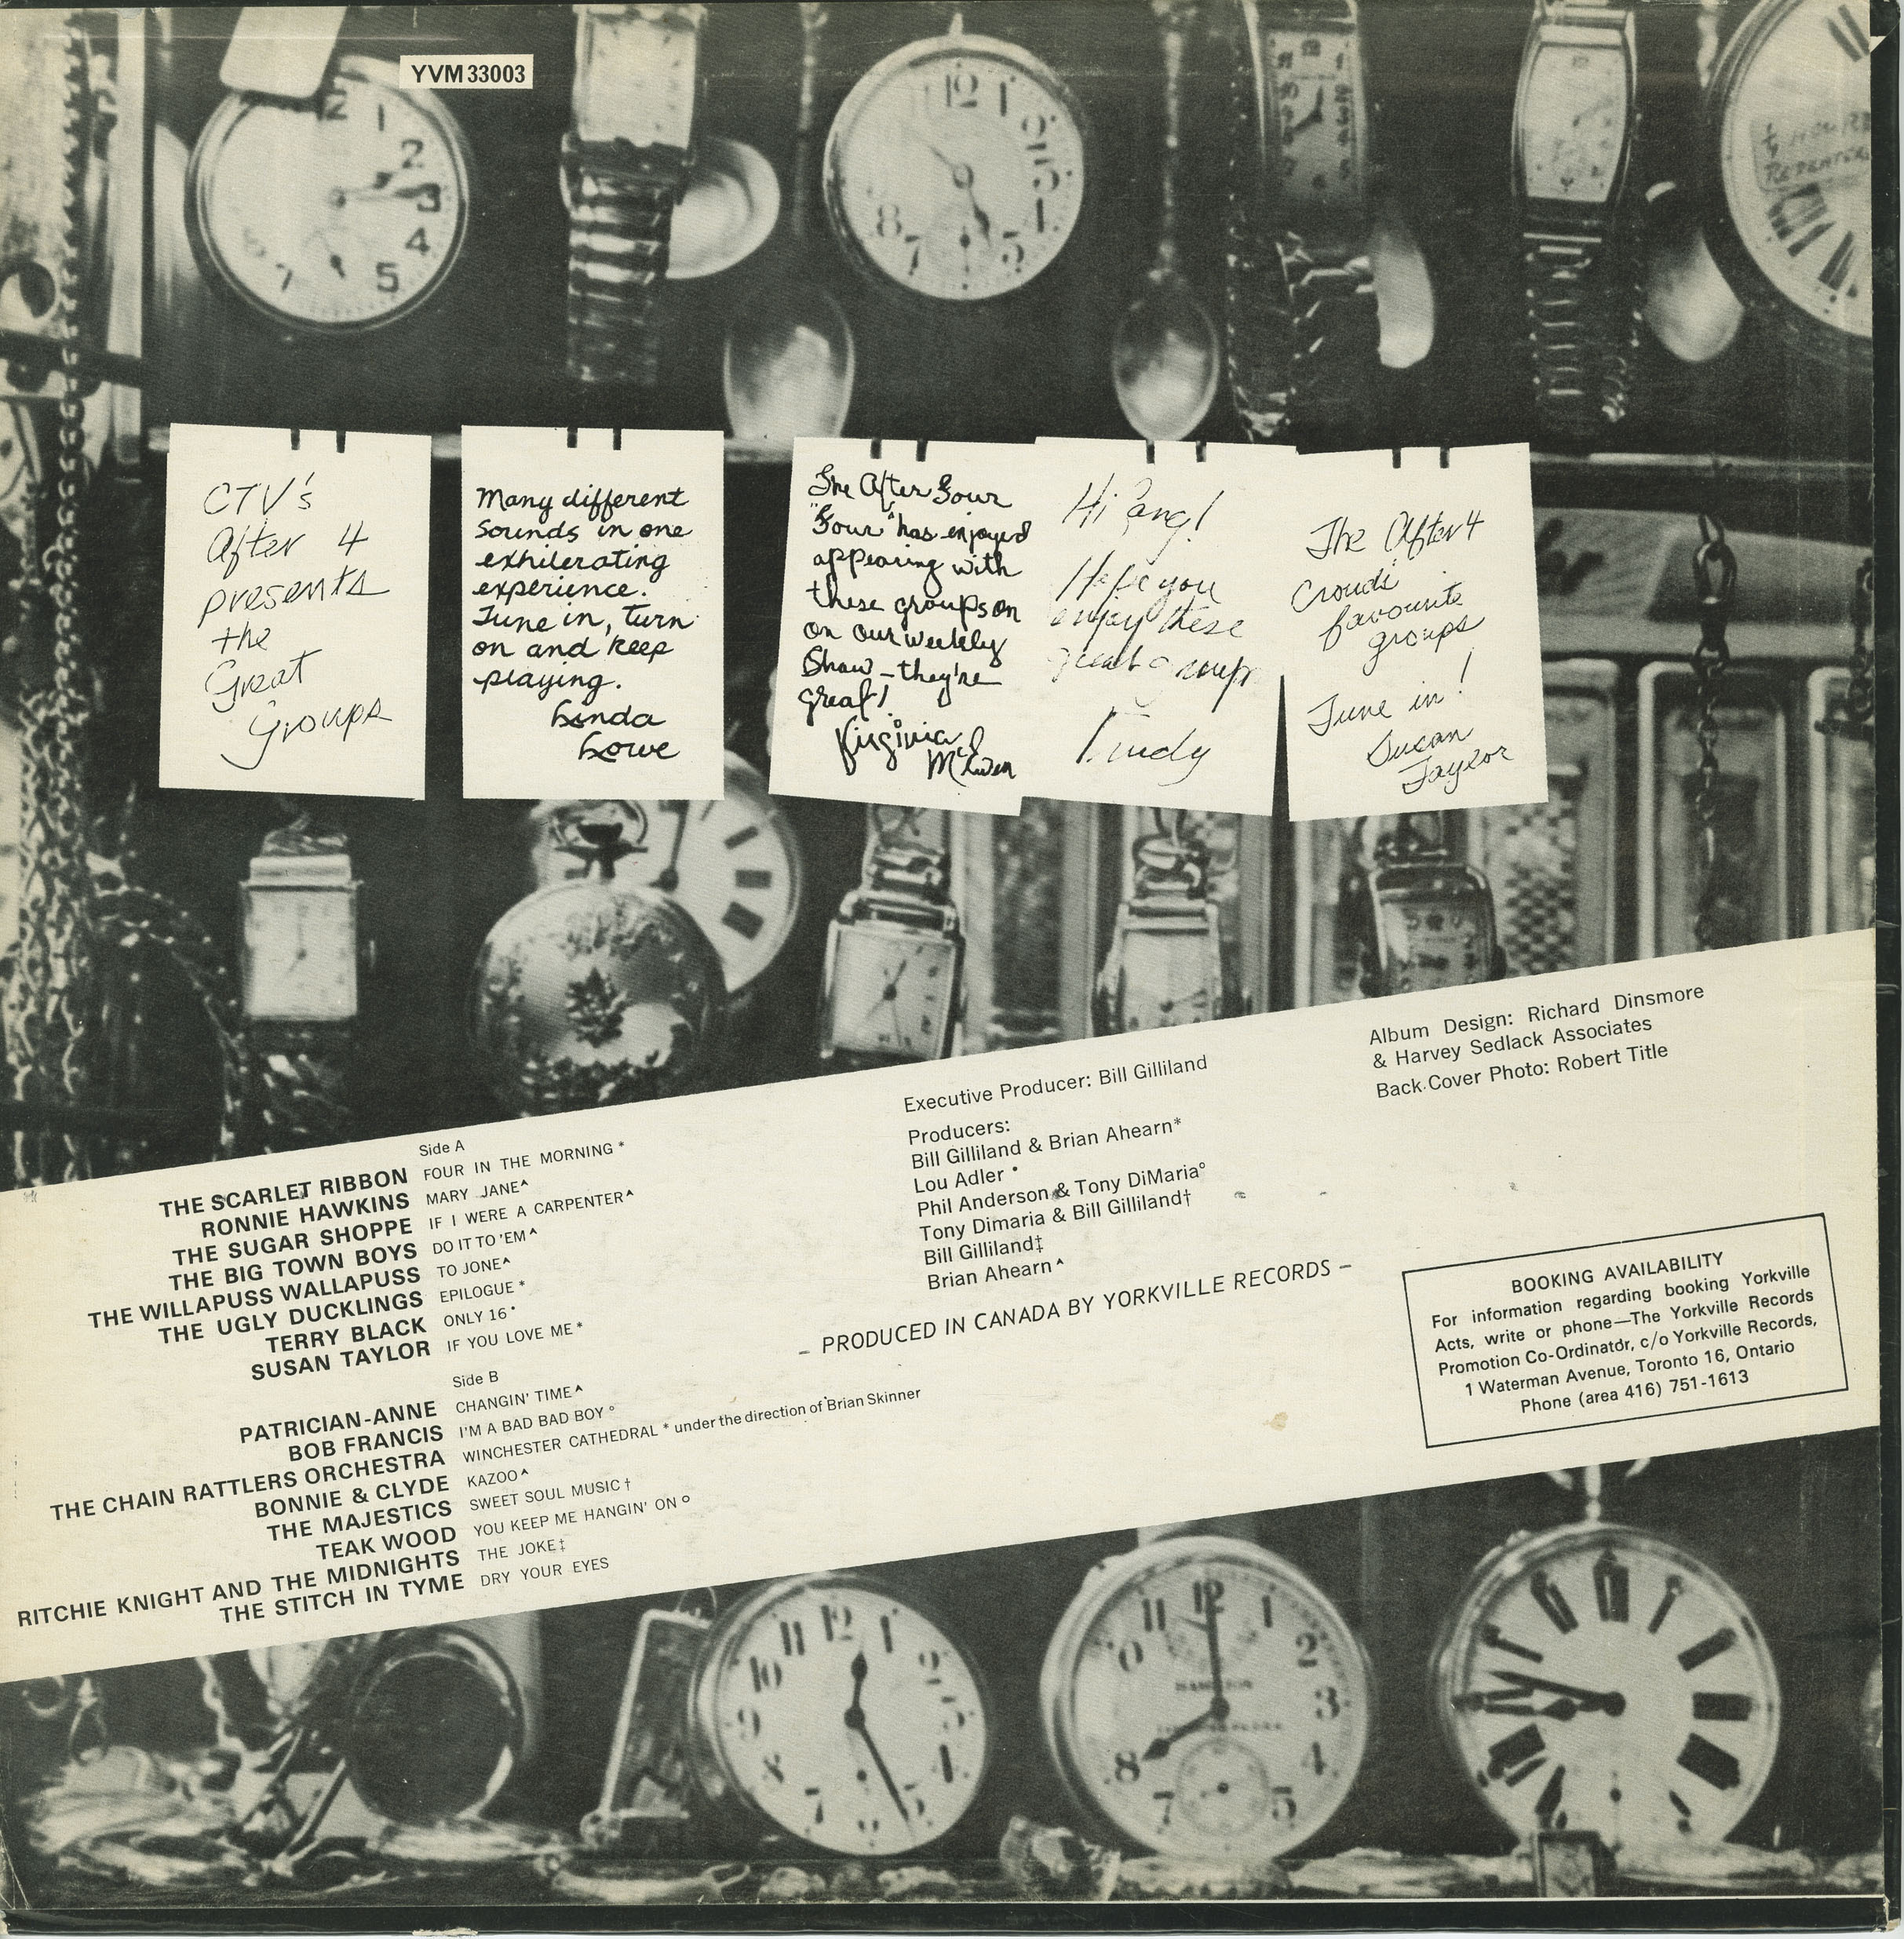 YVM 33003
CTV's
After 4
presents
the
Great
Groups
Many different
sounds in one
exhilerating
experience.
Tune in, turn
on and keep
playing.
Linda
Lowe
The After Four
"Four" has enjoyed
appearing with
these groups on
on our weekly
Show - they're
great!
Virginia
McEwen
Hi Gang!
Hope you
enjoy these
great groups
Trudy
The After 4
Crowds
favourite
groups
Tune in!
Susan
Taylor
¼ HOUR
REPEATER
Album Design: Richard Dinsmore
& Harvey Sedlack Associates
Back Cover Photo: Robert Title
Executive Producer: Bill Gilliland
Producers:
Bill Gilliland & Brian Ahearn*
Lou Adler •
Phil Anderson & Tony DiMaria°
Tony Dimaria & Bill Gilliland†
Bill Gilliland‡
Brian Ahearn ^
– PRODUCED IN CANADA BY YORKVILLE RECORDS –
Side A
THE SCARLET RIBBON FOUR IN THE MORNING *
RONNIE HAWKINS MARY JANE^
THE SUGAR SHOPPE IF I WERE A CARPENTER^
THE BIG TOWN BOYS DO IT TO 'EM ^
THE WILLAPUSS WALLAPUSS TO JONE^
THE UGLY DUCKLINGS EPILOGUE *
TERRY BLACK ONLY 16 •
SUSAN TAYLOR IF YOU LOVE ME *
Side B
PATRICIAN-ANNE CHANGIN' TIME^
BOB FRANCIS I'M A BAD BAD BOY °
THE CHAIN RATTLERS ORCHESTRA WINCHESTER CATHEDRAL * under the direction of Brian Skinner
BONNIE & CLYDE KAZOO^
THE MAJESTICS SWEET SOUL MUSIC †
TEAK WOOD YOU KEEP ME HANGIN' ON °
RITCHIE KNIGHT AND THE MIDNIGHTS THE JOKE‡
THE STITCH IN TYME DRY YOUR EYES
BOOKING AVAILABILITY
For information regarding booking Yorkville
Acts, write or phone—The Yorkville Records
Promotion Co-Ordinator, c/o Yorkville Records,
1 Waterman Avenue, Toronto 16, Ontario
Phone (area 416) 751-1613
HAMILTON